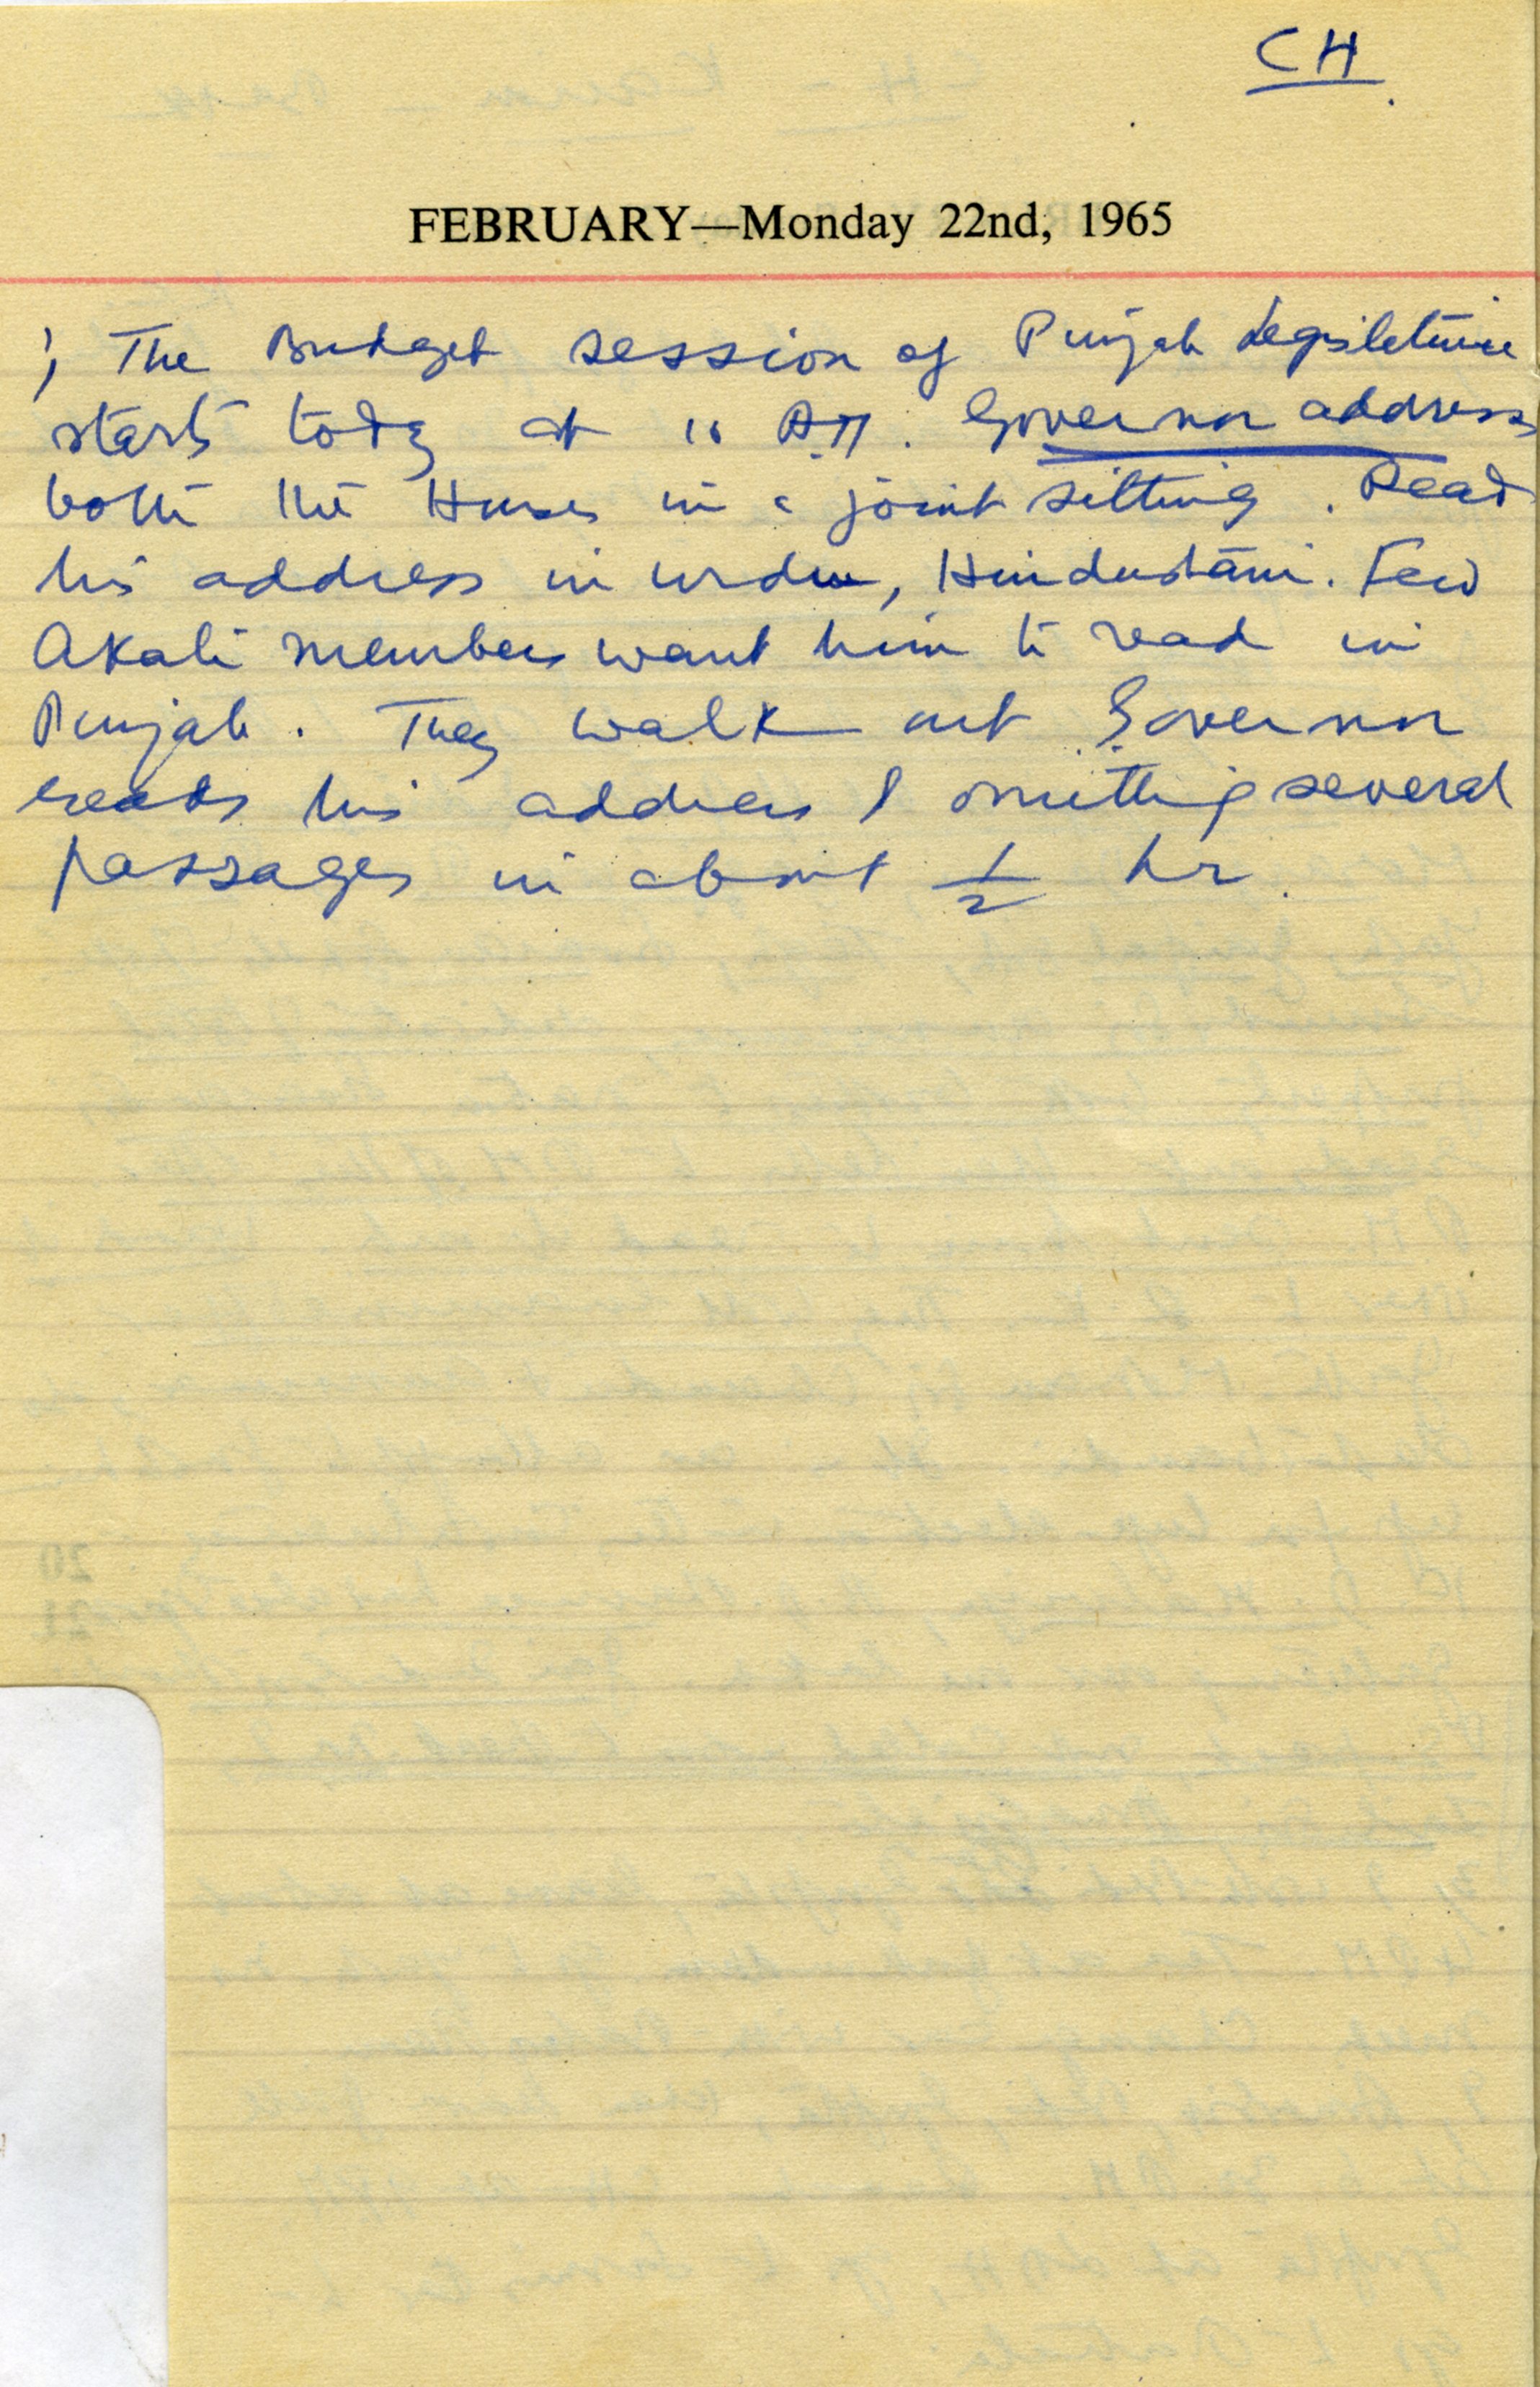 CH
FEBRUARY—Monday 22nd, 1965
1, The Budget session of Punjab Legislature
starts today at 11 A.M. Governor address
both the Houses in a joint sitting. Read
his address in urdu, Hindustani. Few
Akali members want him to read in
Punjab. They walk out Governor
reads his address & omitting several
passages in about 1/2 hr.